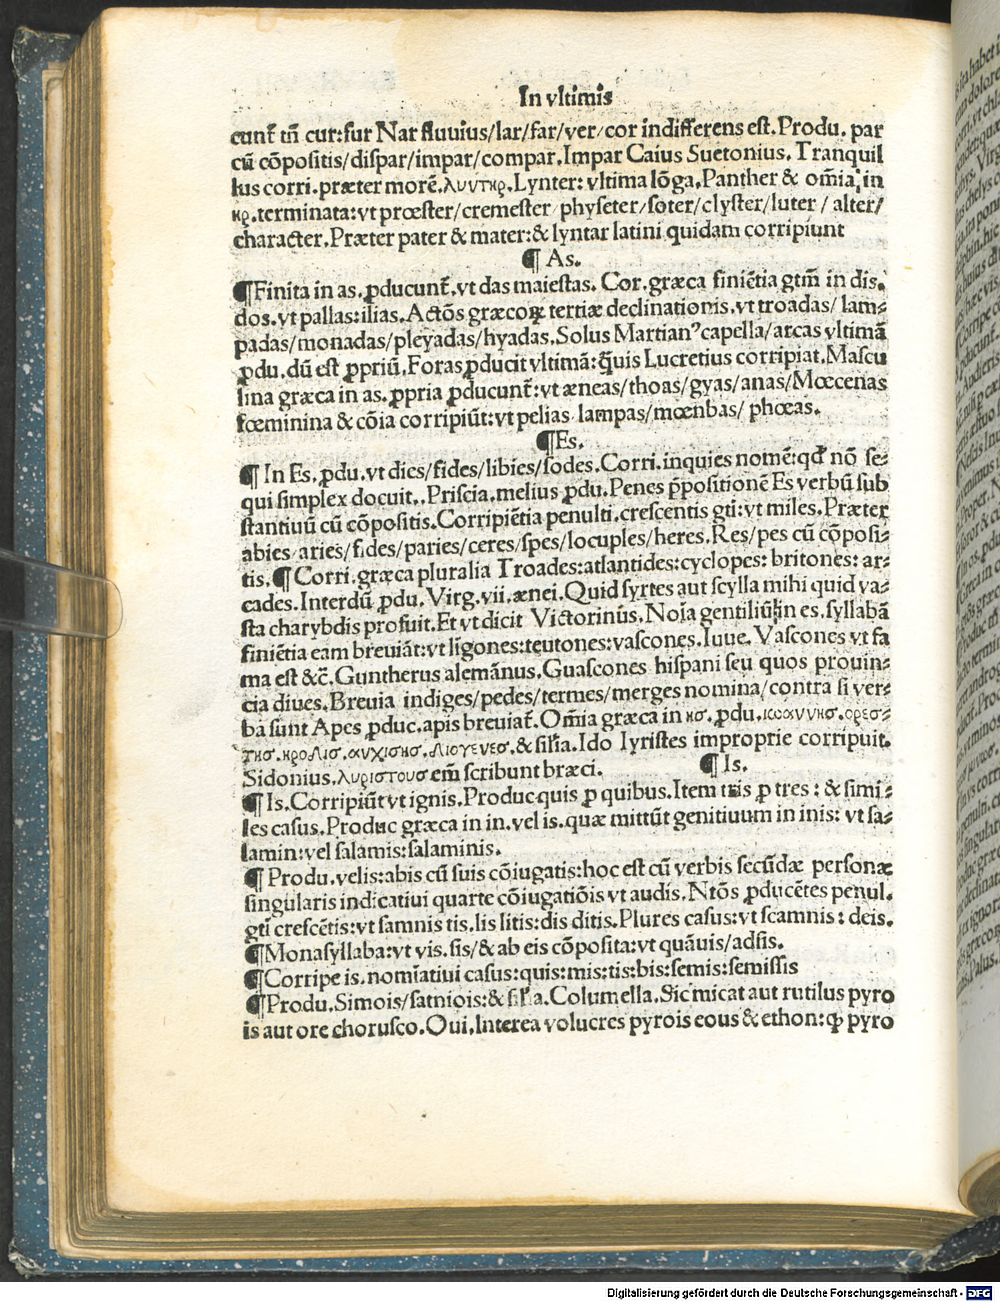 In vltimis
cunt᷑ tñ cur:fur Nar fluuius/lar/far/ver/cor indifferens est.Produ. par
cũ cõpositis/dispar/impar/compar.Impar Caius Suetonius. Tranquil
lus corri.præter morẽ.λυντηρ.Lynter: vltima lõga.Panther & om̃ia in
ηρ.terminata:vt prœster/cremester physeter/soter/clyster/luter / alter/
character.Præter pater & mater:& lyntar latini quidam corripiunt
¶ As.
¶Finita in as.ꝓducunt᷑.vt das maiestas. Cor.græca finiẽtia gtm̃ in dis.
dos.vt pallas:ilias.Actõs græcoꝝ tertiæ declinationis.vt troadas/ lam-
padas/monadas/pleyadas/hyadas.Solus Martianꝰcapella/arcas vltimã
ꝓdu.dũ est ꝓpriũ.Foras ꝓducit vltimã:q̃uis Lucretius corripiat.Mascu
lina græca in as.ꝓpria ꝓducunt᷑:vt æneas/thoas/gyas/anas/Mœcenas
fœminina & cõia corripiũt:vt pelias lampas/mœnbas/ phœas.
¶Es.
¶ In Es.ꝓdu.vt dies/fides/libies/sodes.Corri.inquies nomẽ:qđ nõ se-
qui simplex docuit..Priscia.melius ꝓdu.Penes p̃positionẽ Es verbũ sub
stantiuũ cũ cõpositis.Corripiẽtia penulti.crescentis gti:vt miles.Præter
abies/aries/fides/paries/ceres/spes/locuples/heres.Res/pes cũ cõposi-
tis.¶ Corri.græca pluralia Troades:atlantides:cyclopes: britones: ar-
cades.Interdũ ꝓdu.Virg.vii.ænei.Quid syrtes aut scylla mihi quid va-
sta charybdis profuit.Et vt dicit Victorinus.Noĩa gentiliũ in es.syllabã
finiẽtia eam breuiãt:vt ligones:teutones:vascones.Iuue.Vascones vt fa
ma est &c̃.Guntherus alemãnus.Guascones hispani seu quos prouin-
cia diues.Breuia indiges/pedes/termes/merges nomina/contra si ver-
ba sunt Apes ꝓduc.apis breuiat᷑.Om̃ia græca in ησ.ꝓdu.ιωαννησ.ορεσ-
τησ.ηροδισ.ανχισησ.διογενεσ.& sil̃ia.Ido Iyristes improprie corripuit.
Sidonius.λυριστουσ em̃ scribunt bræci. ¶ Is.
¶ Is.Corripiũt vt ignis.Produc quis ꝑ quibus.Item tris ꝑ tres: & simi-
les casus.Produc græca in in.vel is.quæ mittũt genitiuum in inis: vt sa-
lamin:vel salamis:salaminis.
¶ Produ.velis:abis cũ suis cõiugatis:hoc est cũ verbis secũdæ personæ
singularis indicatiui quarte cõiugatiõis vt audis.Ntõs ꝓducẽtes penul.
gti crescẽtis:vt samnis tis.lis litis:dis ditis.Plures casus:vt scamnis: deis.
¶Monasyllaba:vt vis.sis/& ab eis cõposita:vt quãuis/adsis.
¶Corripe is.nomĩatiui casus:quis:mis:tis:bis:semis:semissis
¶Produ.Simois/satniois:& sil̃ia.Columella.Sic micat aut rutilus pyro
is aut ore chorusco.Oui.Interea volucres pyrois eous & ethon:ꝙ pyro
Digitalisierung gefördert durch die Deutsche Forschungsgemeinschaft - DFG